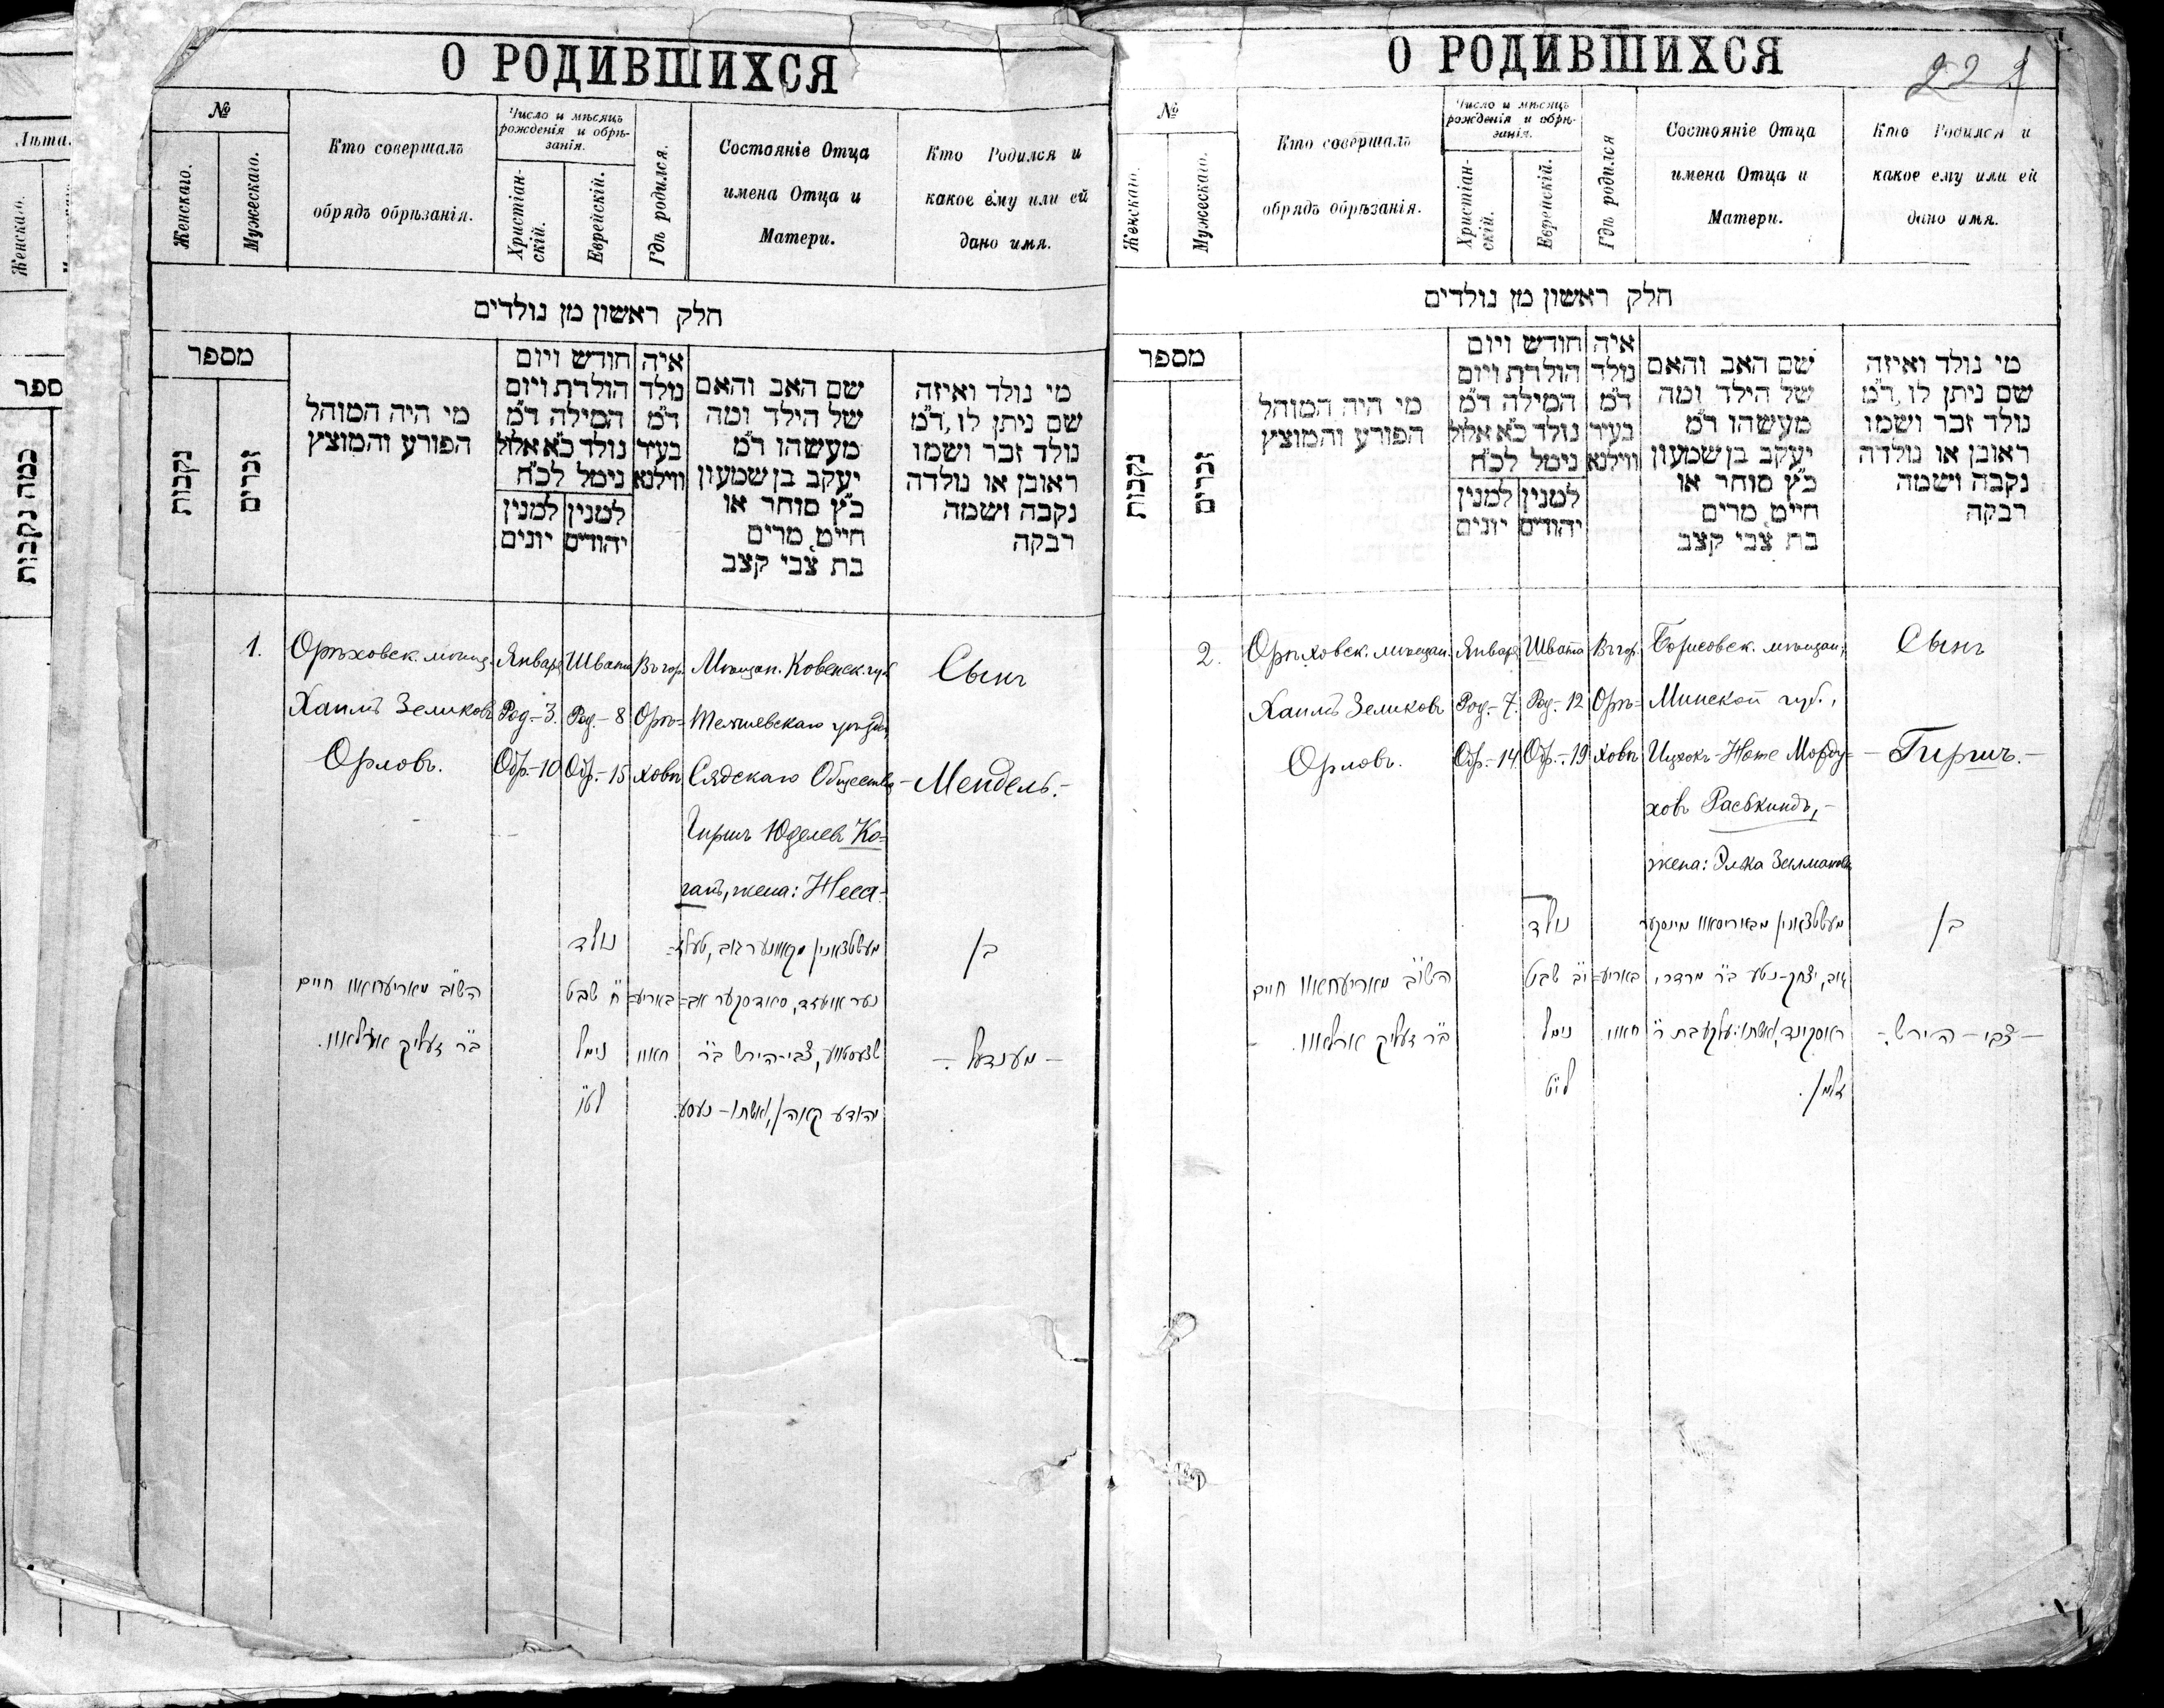 Лѣта.
Женскаго.
ספר
כמה נקבות
О РОДИВШИХСЯ
№
Женскаго.
Мужескаго.
Кто совершалъ
обрядъ обрѣзанія.
Число и мѣсяцъ
рожденія и обрѣ-
занія.
Христіан-
скій.
Еврейскій.
Гдѣ родился.
Состояніе Отца
имена Отца и
Матери.
Кто Родился и
какое ему или ей
дано имя.
חלק ראשון מן נולדים
מספר
נקבות
זכרים
מי היה המוהל
הפורע והמוצץ
חודש ויום
הולדת ויום
המילה ד״מ
נולד כ״א אלול
נימל לכ״ח
למנין
יונים
למנין
יהודים
איה
נולד
ד״מ
בעיר
ווילנא
שם האב והאם
של הילד ומה
מעשהו ד״מ
יעקב בן שמעון
כ״ץ סוחר או
חייט, מרים
בת צבי קצב
מי נולד ואיזה
שם ניתן לו, ד״מ
נולד זכר ושמו
ראובן או נולדה
נקבה ושמה
רבקה
1.
Орѣховск. мѣщ.
Хаимъ Зеликовъ
Орловъ.
Январа
Род.- 3.
Обр.- 10
Швата
Род.- 8
Обр.- 15
Въ гор.
Орѣ=
ховѣ
Мѣщан. Ковенск. губ.
Тельшевскаго уѣзда,
Сядскаго Общества
Гиршъ Юделев Ко=
ганъ, жена: Неса.-
Сынъ
- Мендель.-
השו״ב מאריעחאוו חיים
ב״ר זעליק ארלאוו.
נולד
ח׳ שבט
נימל
לט״ו
באריע=
חאוו
מעשטצאנין מקאוונער גוב, טעלז=
נער אויעזד, סיאדסקער אב=
שצעסטווע, צבי-הירש ב״ר
יהודע קאהן, ואשתו - נעסע.
בן
- מענדעל -
О РОДИВШИХСЯ
22
№
Женскаго.
Мужескаго.
Кто совершалъ
обрядъ обрѣзанія.
Число и мѣсяцъ
рожденія и обрѣ-
занія.
Христіан-
скій.
Еврейскій.
Гдѣ родился
Состояніе Отца
имена Отца и
Матери.
Кто Родился и
какое ему или ей
дано имя.
חלק ראשון מן נולדים
מספר
נקבות
זכרים
מי היה המוהל
הפורע והמוצץ
חודש ויום
הולדת ויום
המילה ד״מ
נולד כ״א אלול
נימל לכ״ח
למנין
יונים
למנין
יהודים
איה
נולד
ד״מ
בעיר
ווילנא
שם האב והאם
של הילד ומה
מעשהו ד״מ
יעקב בן שמעון
כ״ץ סוחר או
חייט, מרים
בת צבי קצב
מי נולד ואיזה
שם ניתן לו, ד״מ
נולד זכר ושמו
ראובן או נולדה
נקבה ושמה
רבקה
2.
Орѣховск. мѣщан.
Хаимъ Зеликовъ
Орловъ.
Январа
Род.- 7.
Обр.- 14.
Швата
Род.- 12
Обр.- 19
Въ гор.
Орѣ=
ховѣ
Борисовск. мѣщан.,
Минской губ.,
Ицхокъ-Ноте Морду=
ховъ Расъкиндъ,-
жена: Элька Залманова
Сынъ
- Гиршъ.-
השו״ב מאריעחאוו חיים
ב״ר זעליק ארלאוו.
נולד
י״ב שבט
נימל
לי״ט
באריע=
חאוו
מעשטצאנין מבאריסאוו מינסקער
גוב, יצחק-נטע ב״ר מרדכי
ראסקינד, ואשתו: עלקע בת ר׳
זלמן.
בן
- צבי - הירש -